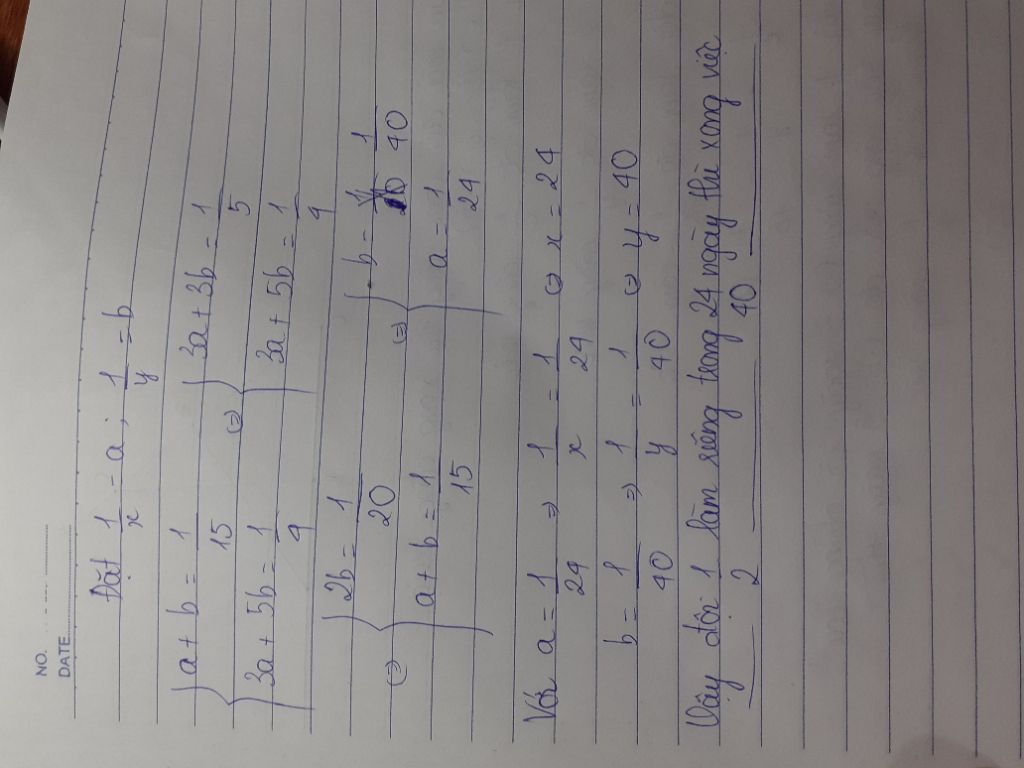 NO.
DATE
Đặt 1/x = a ; 1/y = b
{ a + b = 1/15 (=) { 3a + 3b = 1/5
3a + 5b = 1/4 3a + 5b = 1/4
(=) { 2b = 1/20 (=) { b = 1/40
a + b = 1/15 a = 1/24
Với a = 1/24 => 1/x = 1/24 (=) x = 24
b = 1/40 => 1/y = 1/40 (=) y = 40
Vậy đội 1 làm riêng trong 24 ngày thì xong việc
2 40